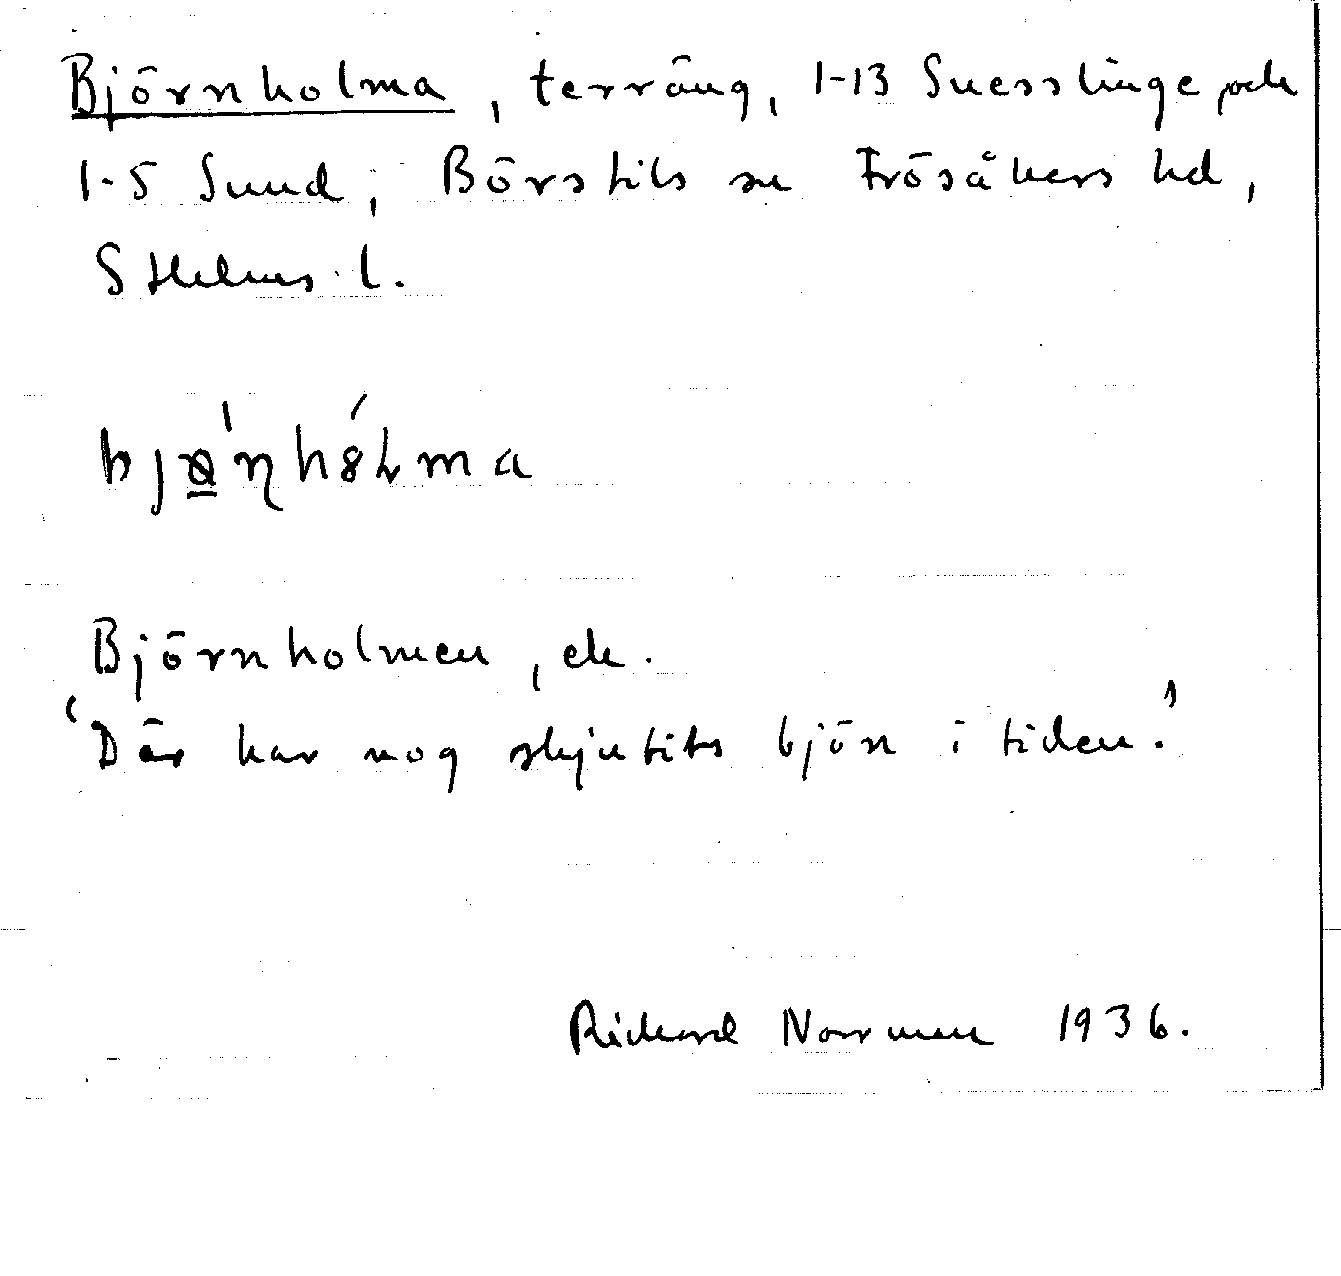 Björnholma, terräng, 1-13 Snesslinge och
1-5 Sund, Börstils sn Frösåkers hd,
Sthlms l.
bjø̲̀ɳhóɫma
Björnholmen, ek.
'Där har nog skjutits björn i tiden.'
Rickard Norrman 1936.